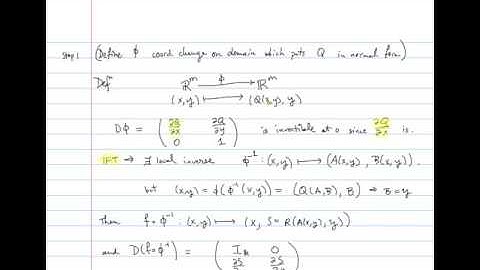 Step 1 (Define ϕ coord change on domain which puts Q in normal form)
Defⁿ ℝᵐ —ϕ→ ℝᵐ
(x,y) ⟼ (Q(x,y), y)
Dϕ = ( ∂Q/∂x ∂Q/∂y ; 0 1 ) is invertible at 0 since ∂Q/∂x is.
IFT ⇒ ∃ local inverse ϕ⁻¹ : (x,y) ⟼ (A(x,y), B(x,y)).
but (x,y) = ϕ(ϕ⁻¹(x,y)) = (Q(A,B), B) ⇒ B = y
Then f∘ϕ⁻¹ : (x,y) ⟼ (x, S = R(A(x,y), y))
and D(f∘ϕ⁻¹) = ( I 0 ; ∂S ∂S